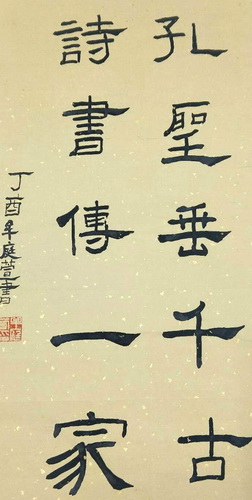 孔聖垂千古
詩書傳一家
丁酉年庭萱書